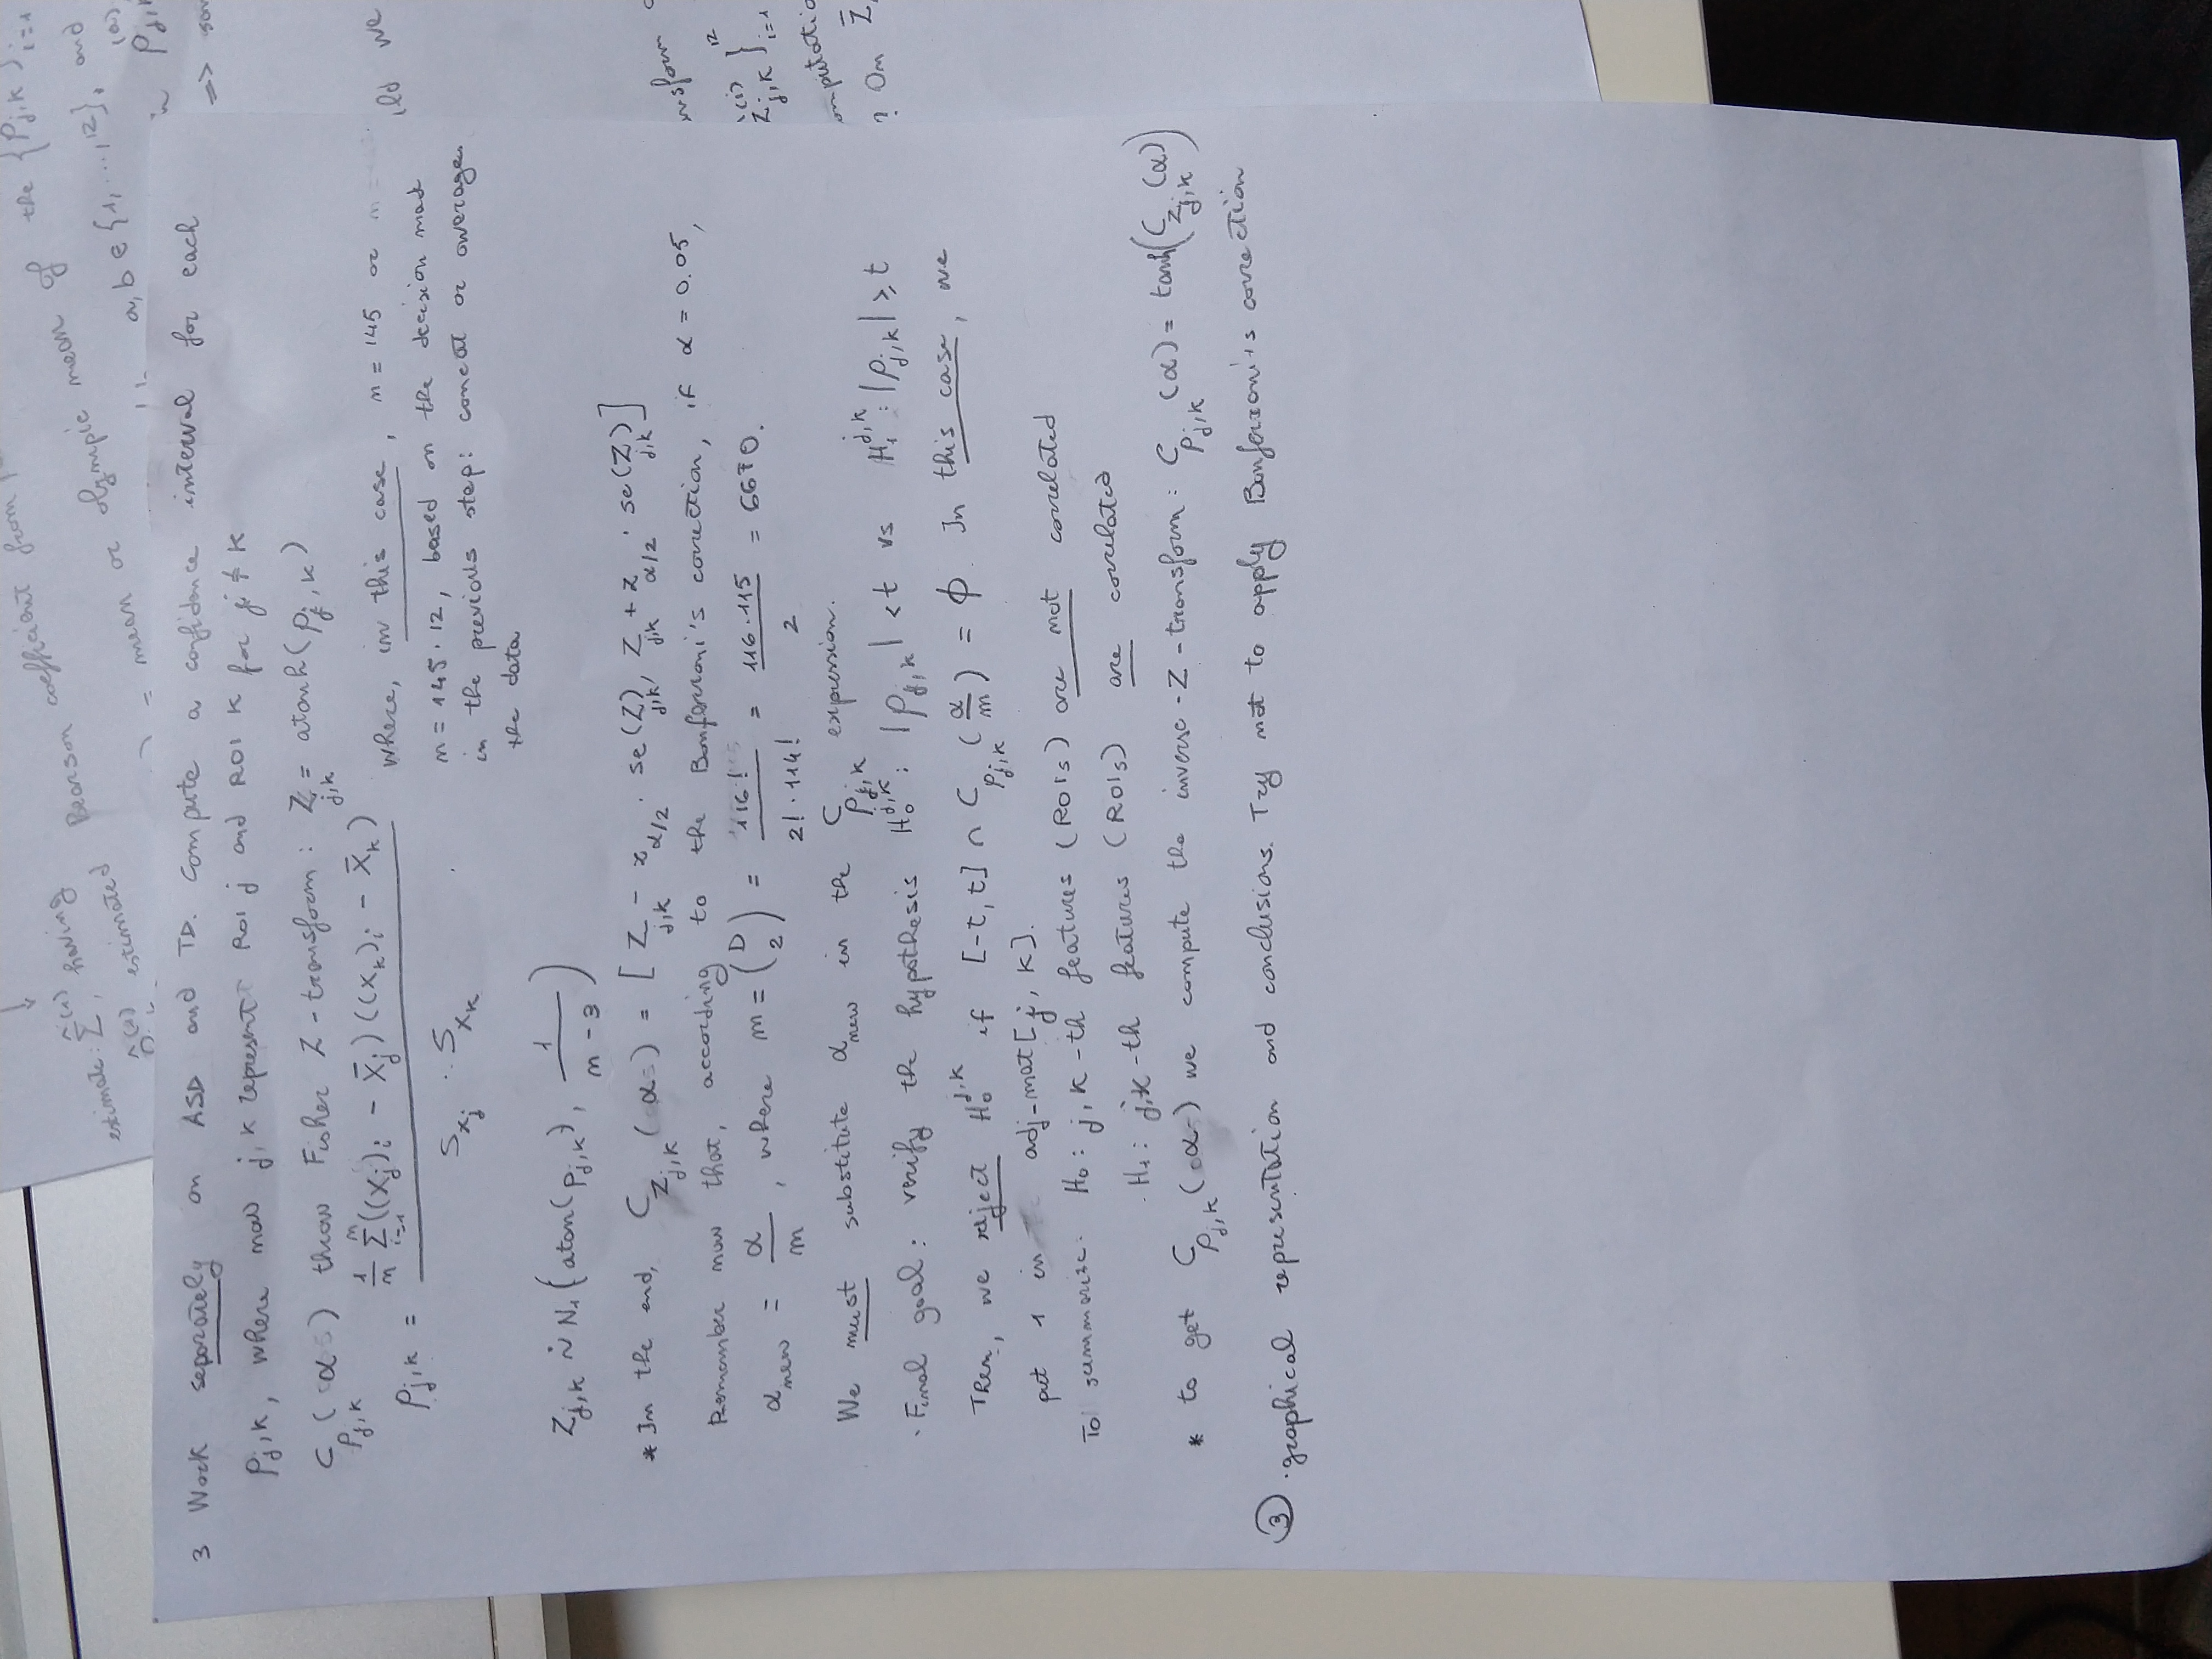 estimate: Σ̂^(1), having
estimated Pearson coefficient from
= mean or olympic mean of the {ρ_j,k}_i=1
a,b ∈ {1, ..., 12}, and
in ρ_j,k^(a)
=>
3 Work separately on ASD and TD. Compute a confidence interval for each
ρ_j,k, where now j,k represent ROI j and ROI K for j ≠ k
C_ρj,k (α) throw Fisher Z-transform: Z_j,k = atanh(ρ_j,k)
ρ_j,k = 1/n Σ_i=1^n ((X_j)_i - X̄_j)((X_k)_i - X̄_k) / S_xj · S_xk
where, in this case, n = 145 or
n = 145·12, based on the decision mad
in the previous step: concat or average
the data
Z_j,k ~̇ N_1 (atan(ρ_j,k), 1/(n-3))
* In the end, C_Zj,k (α) = [Z_j,k - z_α/2 · se(Z_j,k), Z_j,k + z_α/2 · se(Z_j,k)]
Remember now that, according to the Bonferroni's correction, if α = 0.05,
α_new = α/m, where m = (D 2) = 116!/2!·114! = 116·115/2 = 6670.
We must substitute α_new in the C_ρj,k expression.
· Final goal: verify the hypothesis H_0^j,k: |ρ_j,k| < t vs H_1^j,k: |ρ_j,k| ≥ t
Then, we reject H_0^j,k if [-t, t] ∩ C_ρj,k (α/m) = ϕ. In this case, we
put 1 in adj-mat[j, k].
To summarize: H_0: j, k-th features (ROIs) are not correlated
· H_1: j,k-th features (ROIs) are correlated
* to get C_ρj,k (α) we compute the inverse-Z-transform: C_ρj,k (α) = tanh(C_Zj,k (α))
③ · graphical representation and conclusions. Try not to apply Bonferroni's correction
ld we
nsform
^(i)
Z_j,k}_i=1^12
omputatio
? On Z̄,